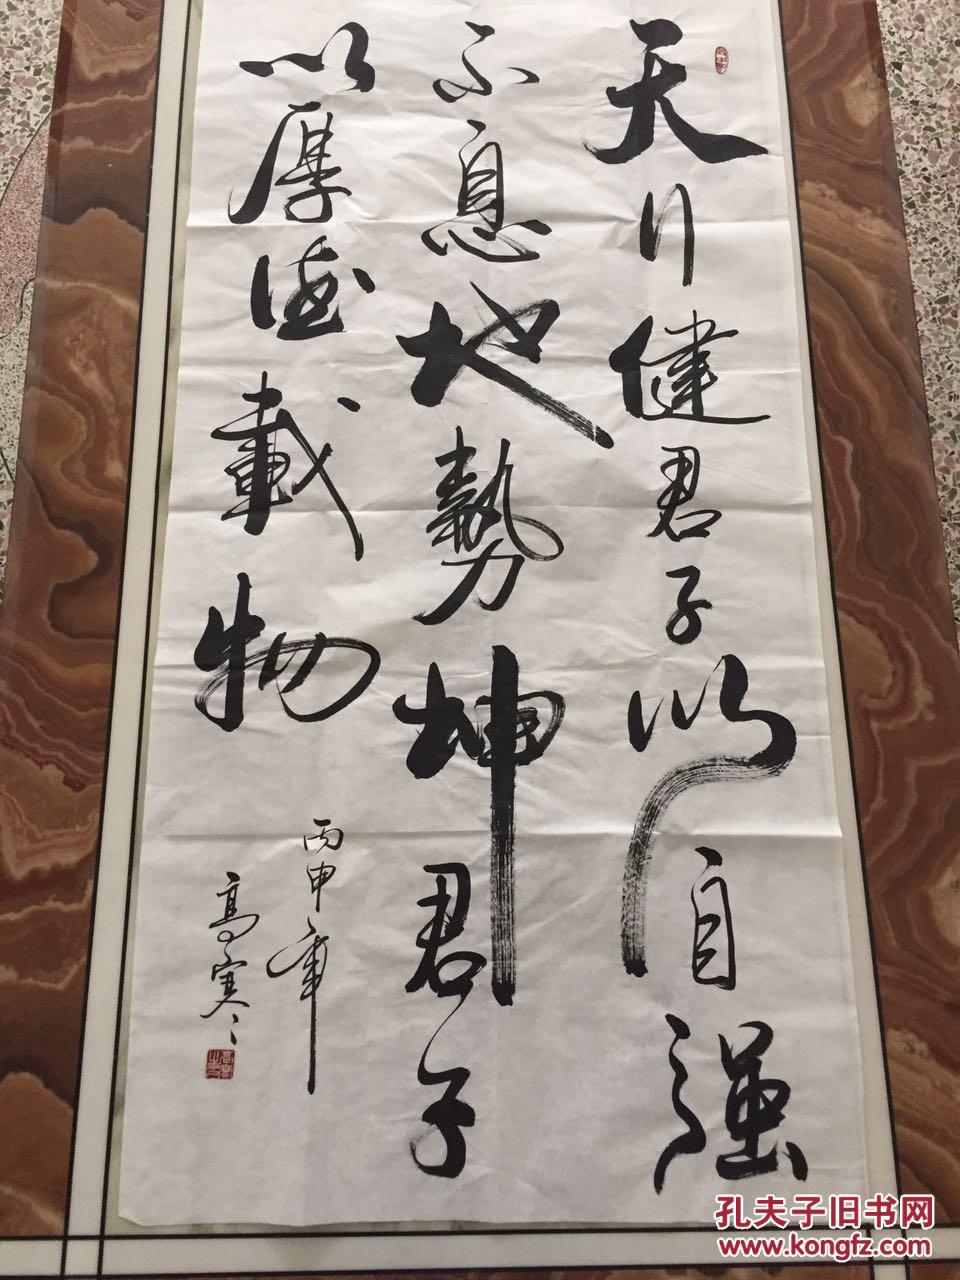 天行健君子以自强
不息地勢坤君子
以厚德載物
丙申年
高寒
孔夫子旧书网
www.kongfz.com